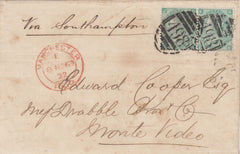 Via Southampton
MANCHESTER
Edward Cooper Esq
Messrs Drabble Bros & Co
Monte Video